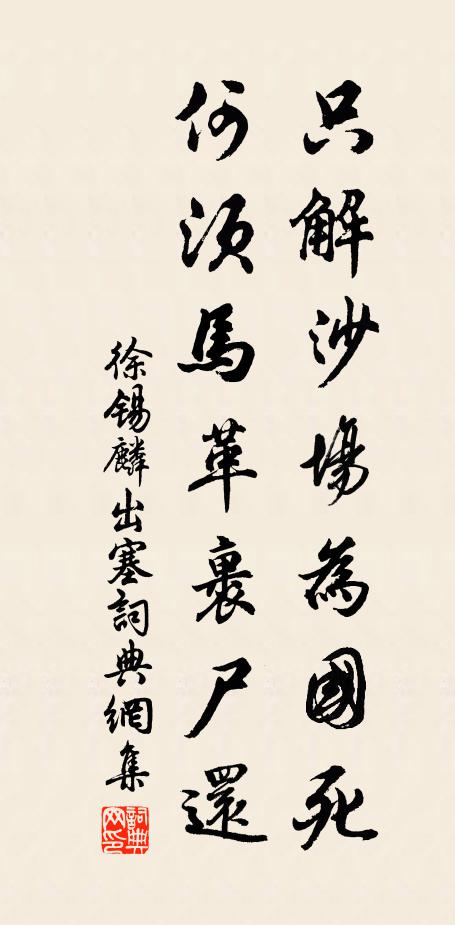 只解沙場為國死
何須馬革裹尸還
徐錫麟出塞詞典網集
詞典網印